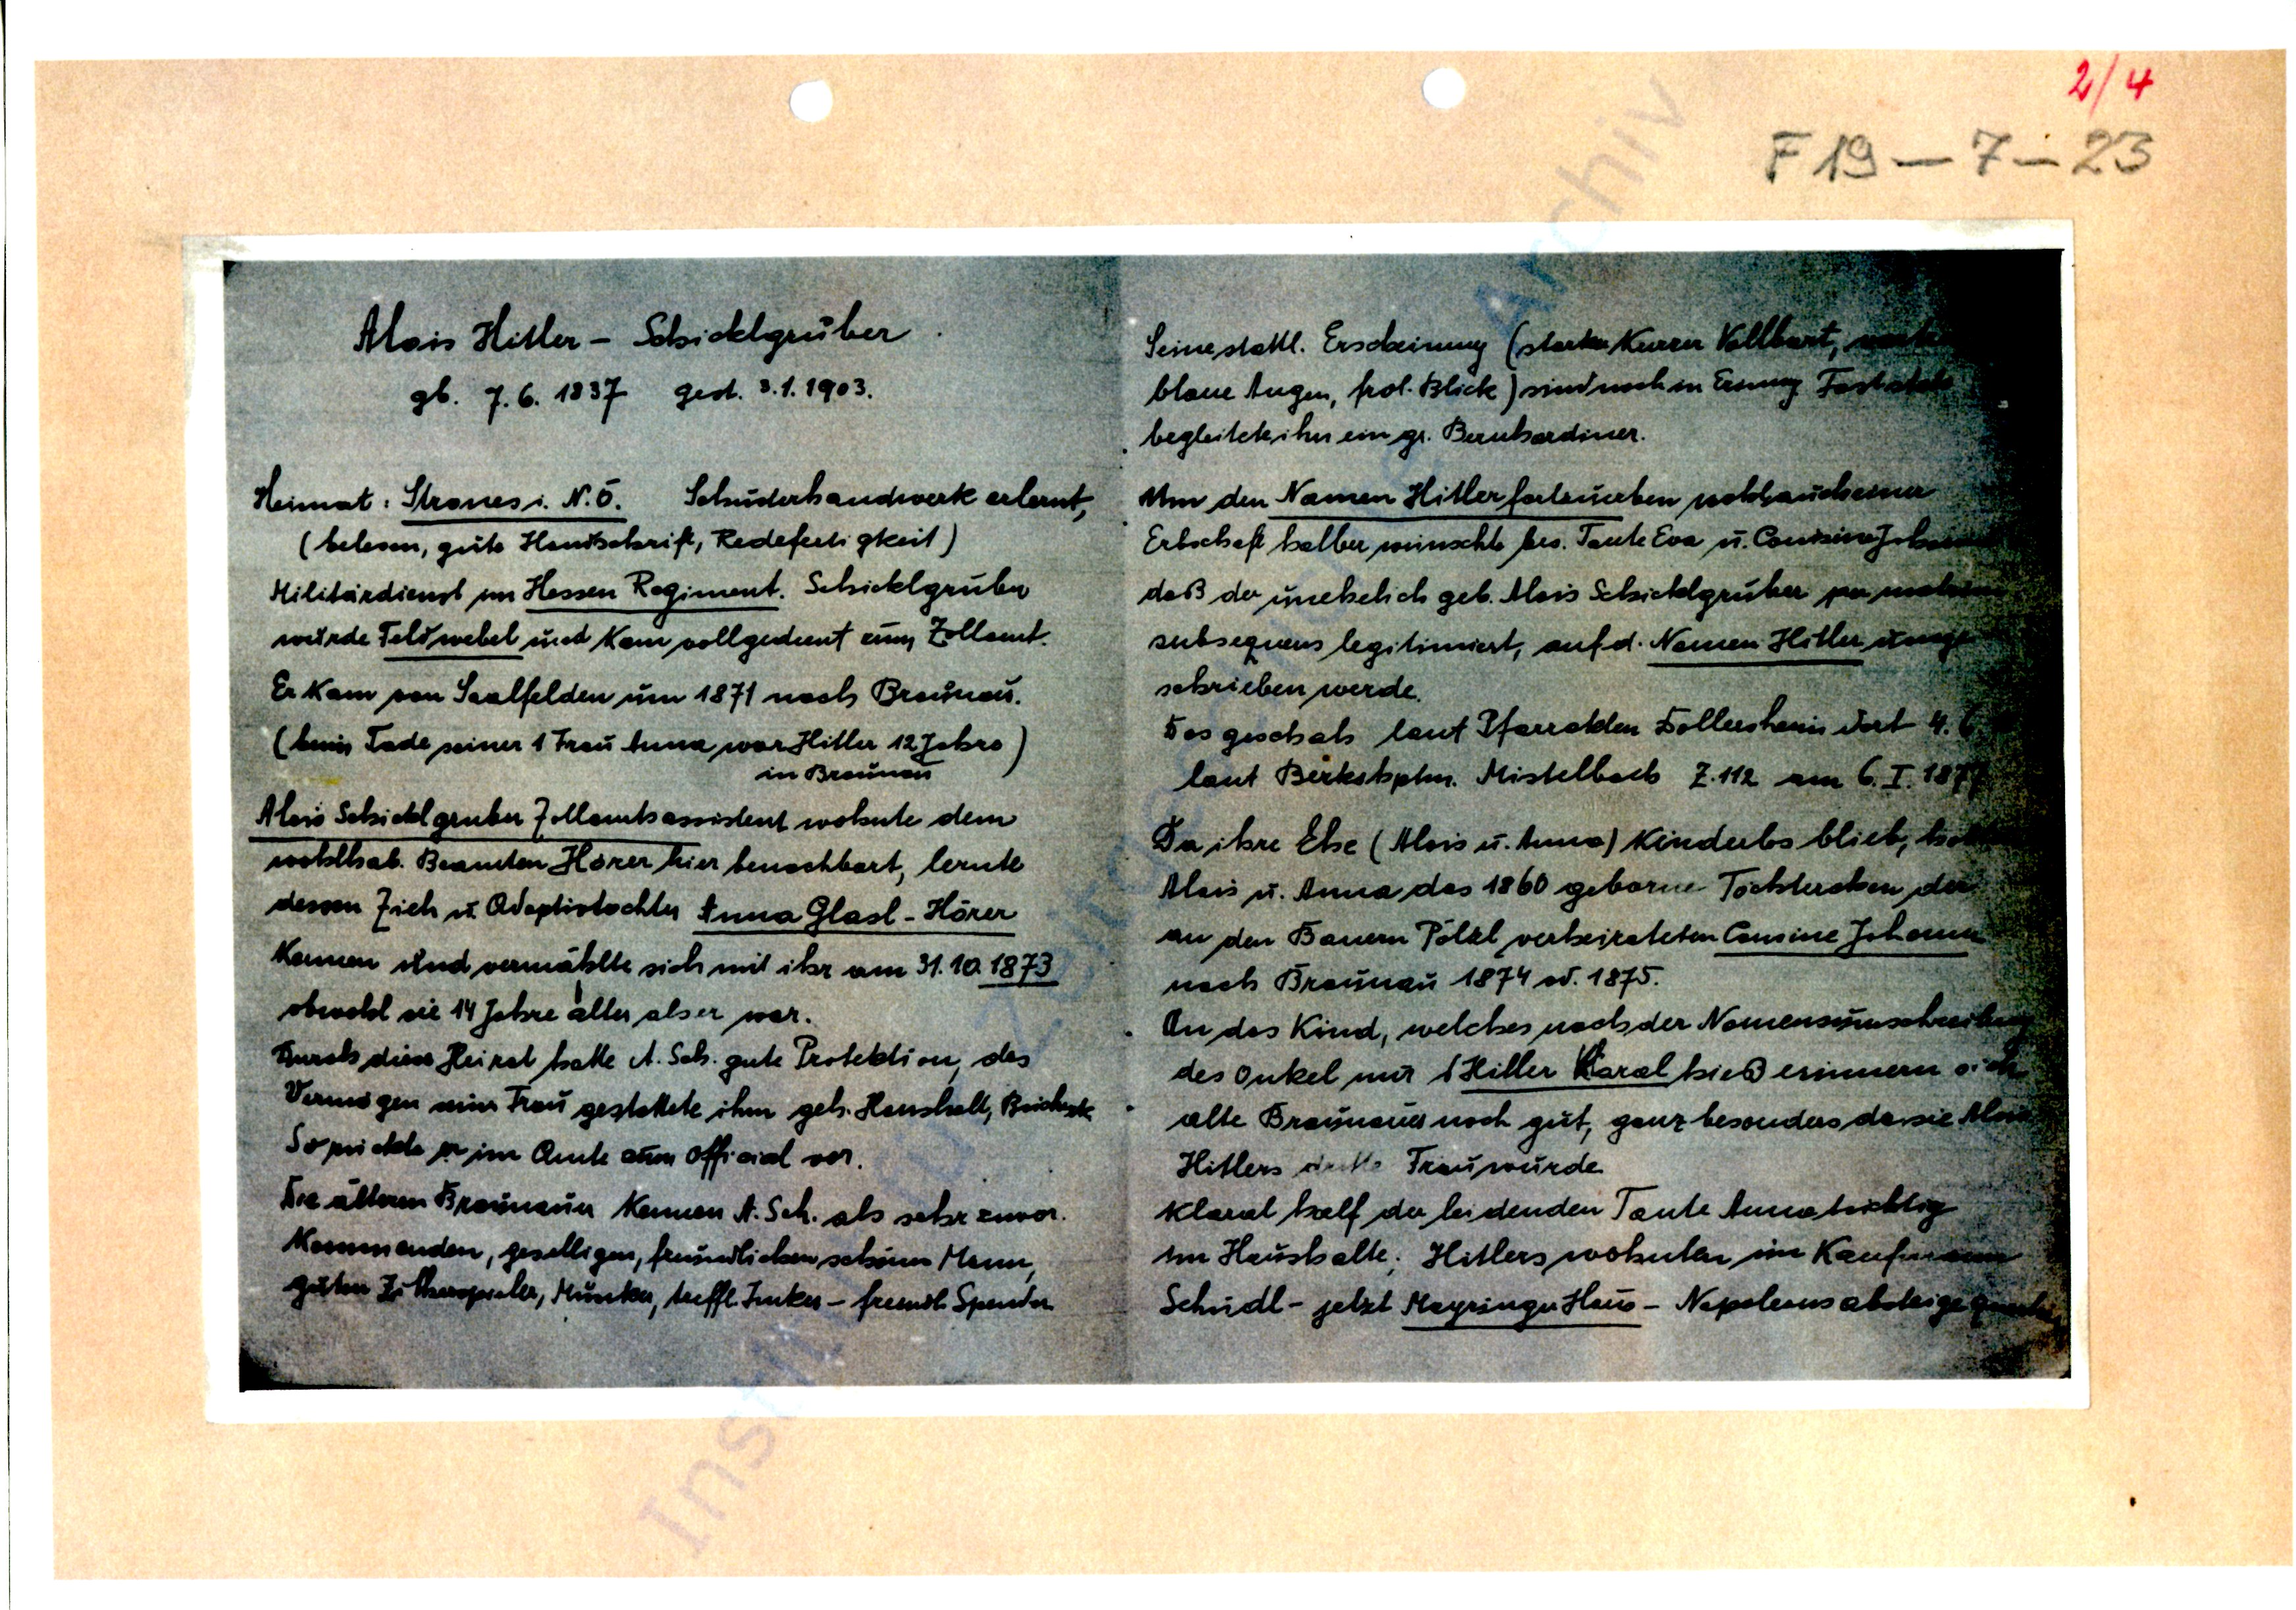 2/4
F 19 — 7 — 23
Alois Hitler – Schicklgruber
gb. 7. 6. 1837 gest. 3. 1. 1903.
Heimat : Strones i. N. Ö. Schusterhandwerk erlernt,
(belesen, gute Handschrift, Redefertigkeit)
Militärdienst im Hessen Regiment. Schicklgruber
wurde Feldwebel und kam vollgedient zum Zollamt.
Er kam von Saalfelden um 1871 nach Braunau.
(beim Tode seiner 1 Frau Anna war Hitler 12 Jahre)
in Braunau
Alois Schicklgruber Zollamtsassistent wohnte dem
wohlhab. Beamten Hörer hier benachbart, lernte
dessen Zieh u. Adoptivtochter Anna Glasl - Hörer
kennen und vermählte sich mit ihr am 31. 10. 1873
obwohl sie 14 Jahre älter als er war.
Durch diese Heirat hatte A. Sch. gute Protektion, das
Vermögen seiner Frau gestattete ihm geh. Haushalt,
So rückte er im Amte zum Official vor.
Die älteren Braunauer kennen A. Sch. als sehr zuvor.
kommenden, geselligen, freundlichen schönen Mann,
guten Zitherspieler, Musiker, treffl. Imker – freundl. Spender
Seine stattl. Erscheinung (starker kurzer Vollbart,
blaue Augen, Blick) sind noch in Erinng. Fast stets
begleitete ihn ein gr. Bernhardiner.
Um den Namen Hitler fortzuerben wohl auch einer
Erbschaft halber wünschte bes. Tante Eva u. Cousine Johanna
daß der unehelich geb. Alois Schicklgruber per
subsequens legitimiert, auf d. Namen Hitler umge
schrieben werde.
Das geschah laut Pfarrakten Döllersheim dort 4. 6.
laut Bezirkshptm. Mistelbach Z. 112 am 6. I. 1877
Da ihre Ehe (Alois u. Anna) kinderlos blieb,
Alois u. Anna das 1860 geborne Töchterchen der
an den Bauern Pölzl verheirateten Cousine Johanna
nach Braunau 1874 od. 1875.
An das Kind, welches nach der Namensumschreibung
des Onkel nur Hitler Klaral hieß erinnern sich
alte Braunauer noch gut, ganz besonders da sie Alois
Hitlers dritte Frau wurde
Klaral half der leidenden Tante Anna tüchtig
im Haushalte; Hitlers wohnten im Kaufmann
Schidl – jetzt Mayringer Haus – Napoleons absteigequartier
Institut für Zeitgeschichte Archiv